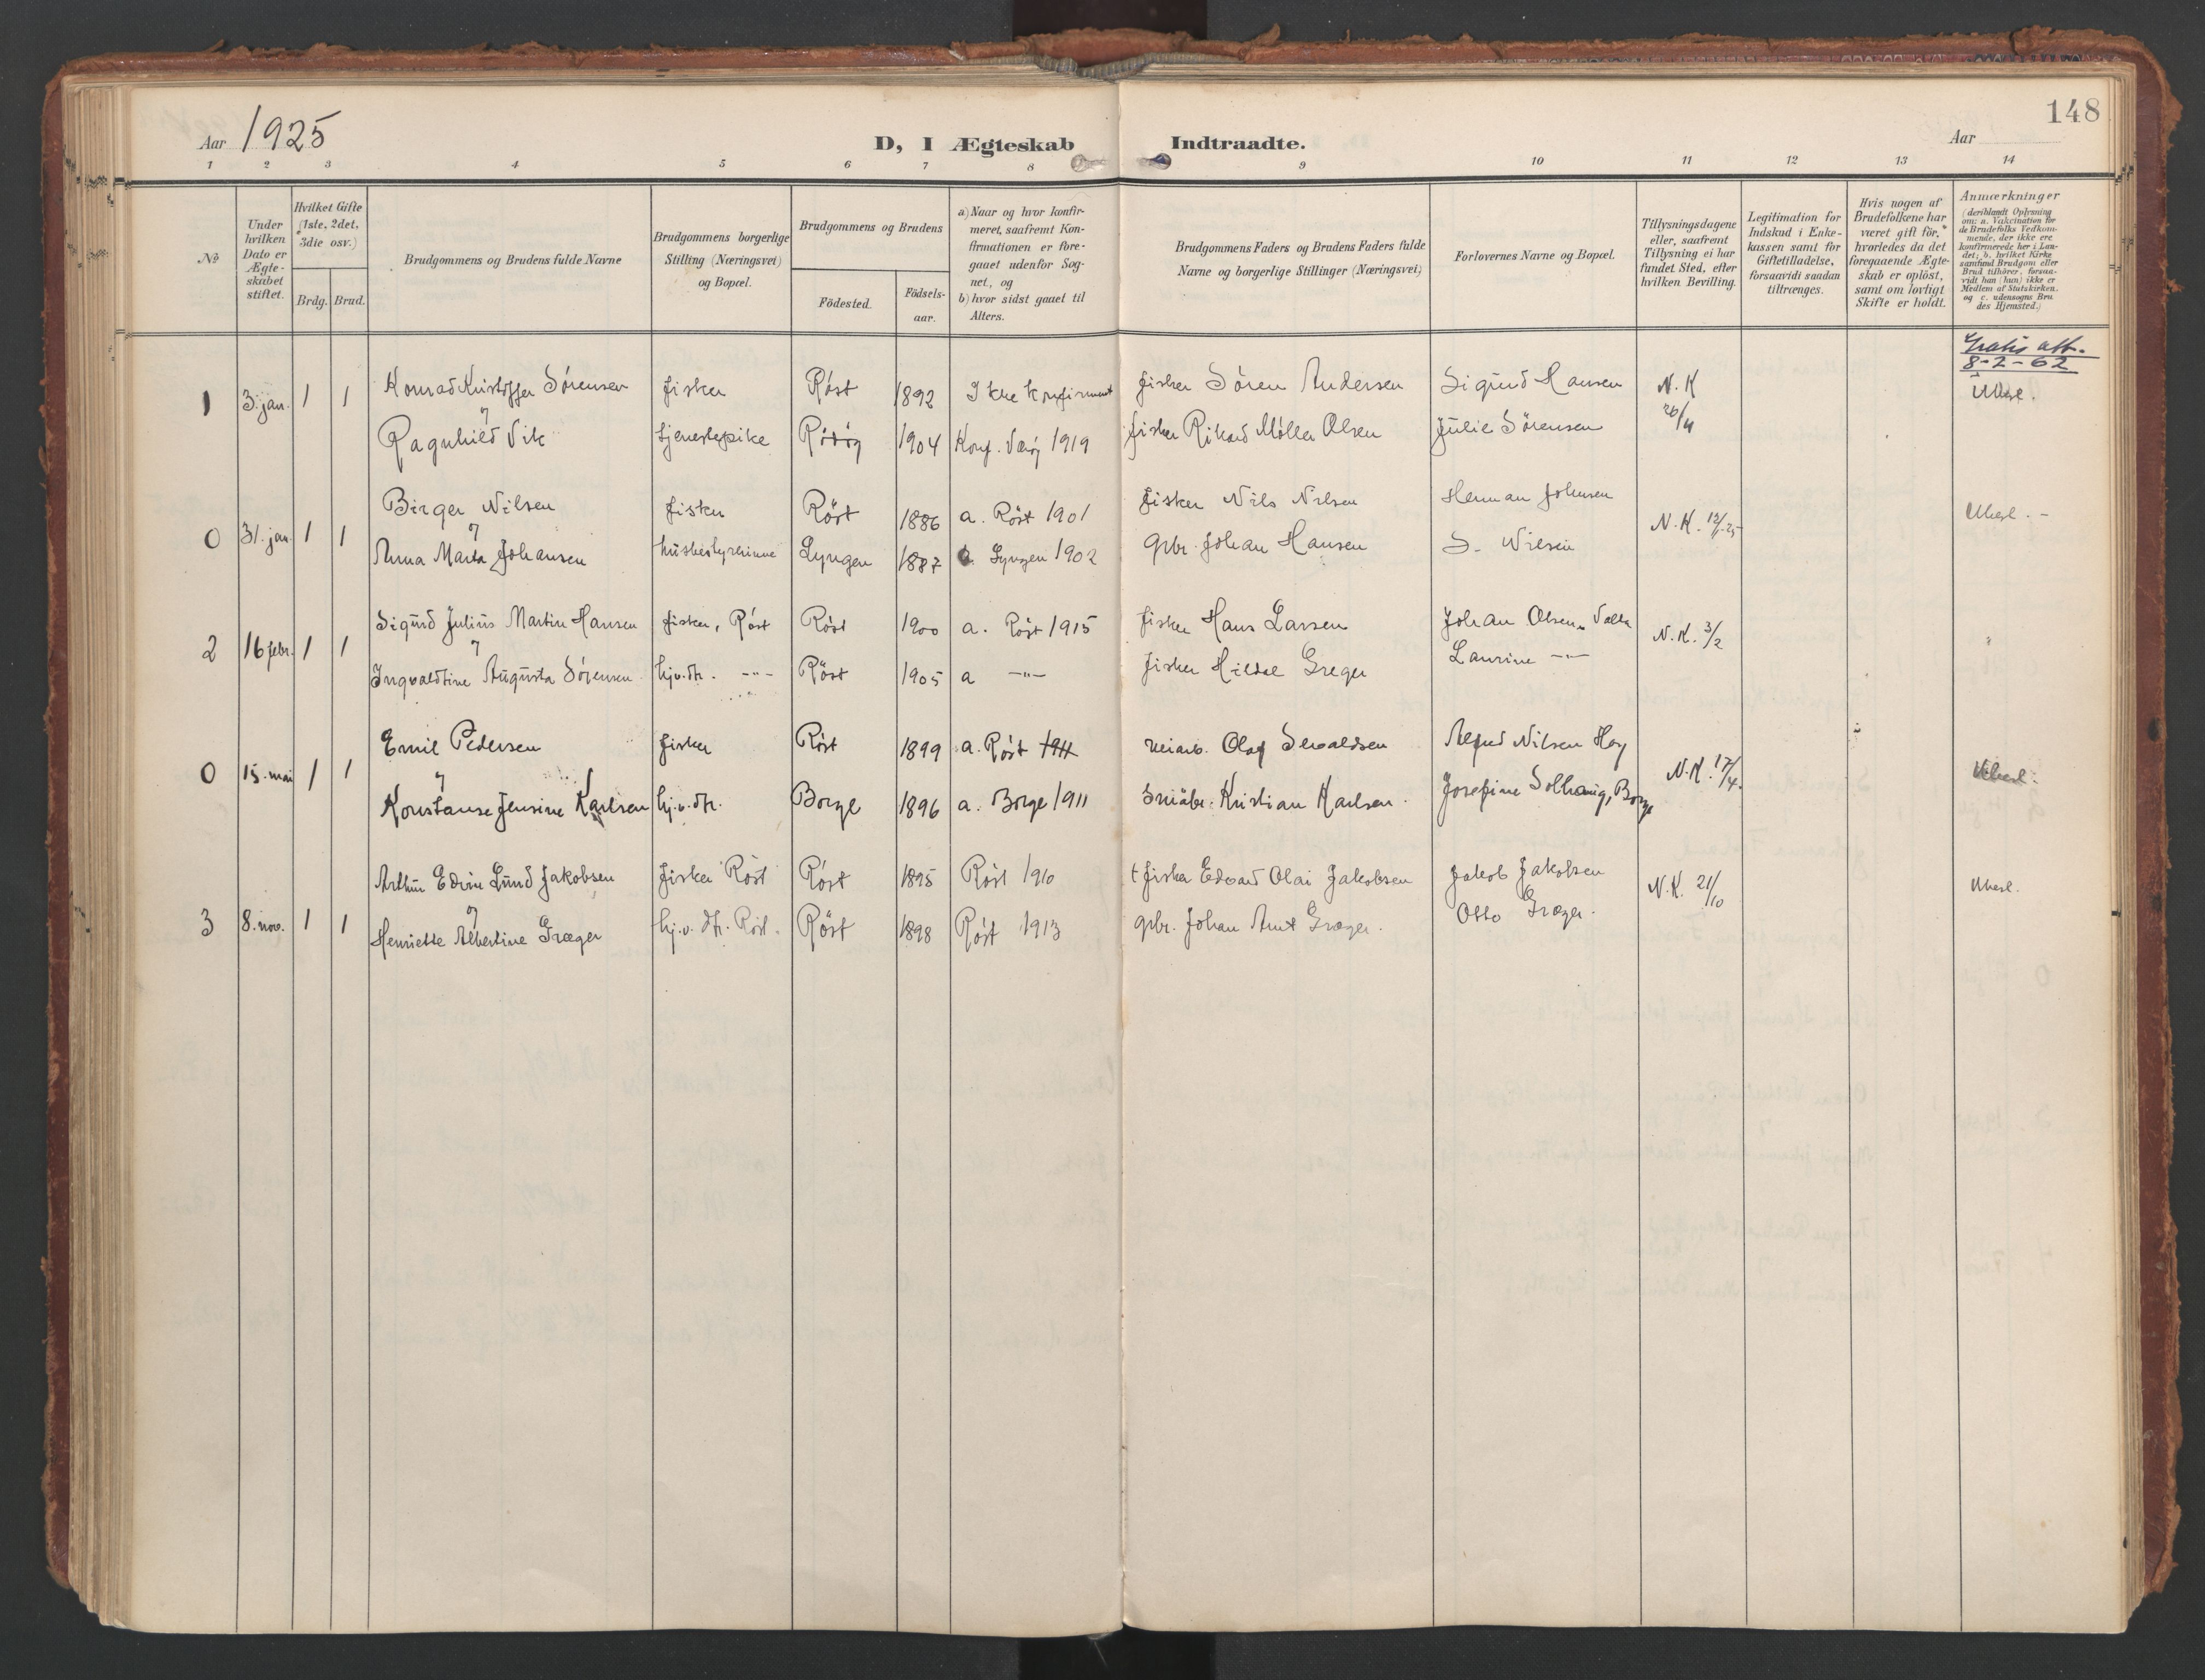 148
Aar 1925
D, I Ægteskab Indtraadte.
Aar
1 2 3 4 5 6 7 8 9 10 11 12 13 14
No
Under hvilken Dato er Ægteskabet stiftet.
Hvilket Gifte (1ste, 2det, 3die osv.)
Brdg. Brud.
Brudgommens og Brudens fulde Navne
Brudgommens borgerlige Stilling (Næringsvei) og Bopæl.
Brudgommens og Brudens
Födested. Födselsaar.
a) Naar og hvor konfirmeret, saafremt Konfirmationen er foregaaet udenfor Sognet, og
b) hvor sidst gaaet til Alters.
Brudgommens Faders og Brudens Faders fulde Navne og borgerlige Stillinger (Næringsvei)
Forlovernes Navne og Bopæl.
Tillysningsdagene eller, saafremt Tillysning ei har fundet Sted, efter hvilken Bevilling.
Legitimation for Indskud i Enkekassen samt for Giftetilladelse, forsaavidt saadan tiltrænges.
Hvis nogen af Brudefolkene har været gift för, hvorledes da det foregaaende Ægteskab er oplöst, samt om lovligt Skifte er holdt.
Anmærkninger
(deriblandt Oplysning om: a. Vakcination för de Brudefolks Vedkommende, der ikke ere konfirmerede her i Landet; b. hvilket Kirkesamfund Brudgom eller Brud tilhörer, forsaavidt han (hun) ikke er Medlem af Statskirken. og c. udensogns Brudes Hjemsted.)
Gratis att.
8-2-62
1 3. jan. 1 1 Konrad Kristoffer Sörensen fisker Röst 1892 Ikke konfirmert fisker Sören Andersen Sigurd Hansen N. K Ubesl.
og
Ragnhild Vik tjenestepike 1904 Konf. Værøy 1919 fisker Rikard Möller Olsen Julie Sörensen
0 31. jan 1 1 Birger Nilsen fisker Röst 1886 a. Röst 1901 fisker Nils Nilsen Herman Johnsen N. K. Ubesl. -
og
Anna Marta Johansen husbestyrerinne Lyngen 1887 Lyngen 1902 grbr. Johan Hansen S. Nilsen
2 16 febr. 1 1 Sigurd Julius Martin Hansen fisker, Röst Röst 1900 a. Röst 1915 fisker Hans Larsen Johan Olsen N. K. 3/2 "
og
Ingvaldtine Augusta Sörensen hj.v.dtr. -"- Röst 1905 a -"- fisker Hildal Greger Laurine -"-
0 15. mai 1 1 Emil Pedersen fisker Röst 1899 a. Röst 1911 Olaf Alfred Nilsen N.K. 17/4. Ubesl.
og
Konstanse Jensine Karlsen hj.v.dtr. Borge 1896 a. Borge 1911 småbr. Kristian Karlsen. Josefine Solhaug, Borge
3 8. nov. 1 1 Arthur Edvin Lund Jakobsen fisker Röst Röst 1895 Röst 1910 † fisker Edvard Olai Jakobsen Jakob Jakobsen N. K. 21/10 Ubesl.
og
Henriette Albertine Græger hj.v. dtr. Röst. Röst 1898 Röst 1913 grbr. Johan Arnt Græger. Otto Græger.